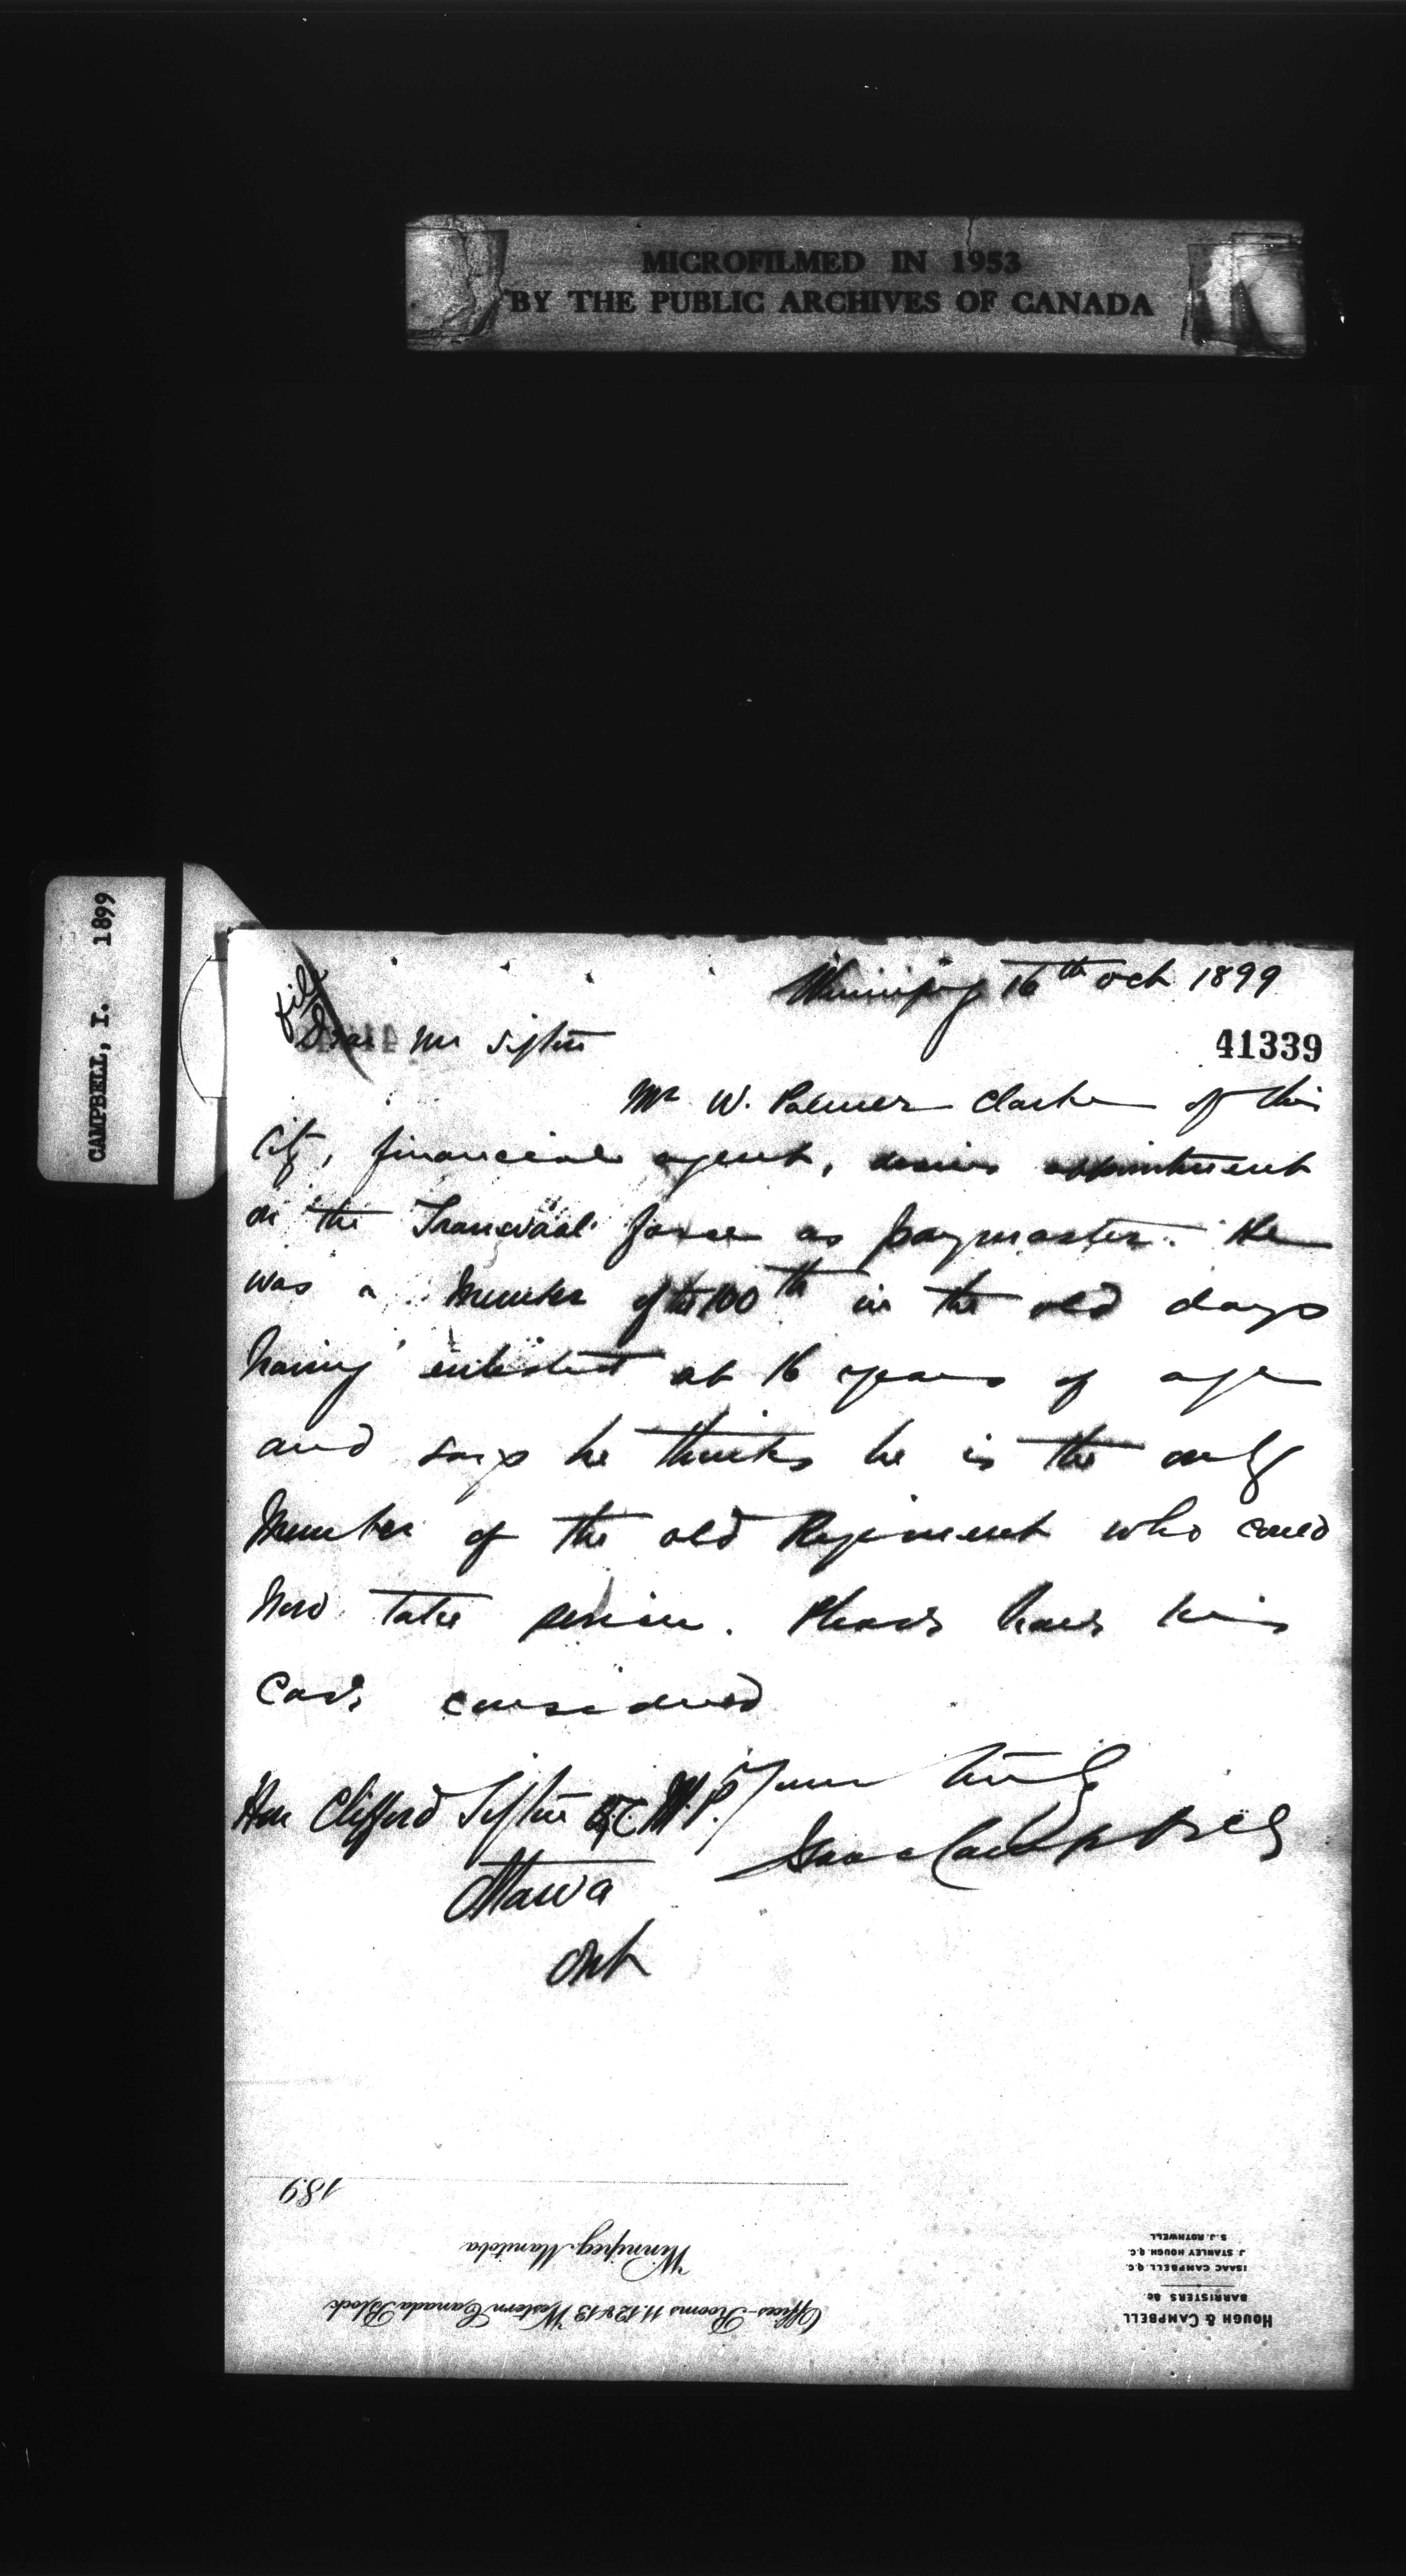 MICROFILMED IN 1953
BY THE PUBLIC ARCHIVES OF CANADA
CAMPBELL, I. 1899
file
Winnipeg 16th Oct 1899
41339
Dear Mr Sifton
Mr W. Palmer Clarke of this
City, financial agent, desires appointment
on the Transvaal force as paymaster. He
was a member of the 100th in the old days
having enlisted at 16 years of age
and says he thinks he is the only
member of the old Regiment who could
now take service. Please have his
case considered
Yours truly
Isaac Campbell
Hon Clifford Sifton M.P.
Ottawa
Ont
189
Winnipeg, Manitoba
Offices-Rooms 11.12 & 13 Western Canada Block
HOUGH & CAMPBELL
BARRISTERS &c
ISAAC CAMPBELL. Q.C.
J. STANLEY HOUGH. Q.C.
S. J. ROTHWELL